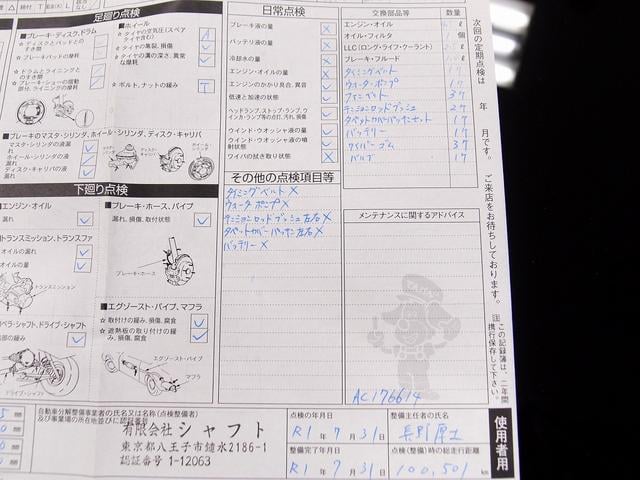 足廻り点検
■ブレーキ・ディスク、ドラム
☆ディスクとパッドとのすき間
☆ブレーキパッドの摩耗
☆ドラムとライニングとのすき間
☆ブレーキ・シューの摺動部分、ライニングの摩耗
■ホイール
☆タイヤの空気圧(スペアタイヤ含む)
☆タイヤの亀裂、損傷
☆タイヤの溝の深さ、異常な摩耗
☆ボルト、ナットの緩み
■ブレーキのマスタ・シリンダ、ホイール・シリンダ、ディスク・キャリパ
マスタ・シリンダの液漏れ
ホイール・シリンダの液漏れ
ディスク・キャリパの液漏れ
下廻り点検
エンジン・オイル
漏れ
トランスミッション、トランスファ
オイルの漏れ
オイルの量
トランスミッション
ペラ・シャフト、ドライブ・シャフト
部の緩み
ドライブ・シャフト
■ブレーキ・ホース、パイプ
漏れ、損傷、取付状態
ブレーキ・ホース
■エグゾースト・パイプ、マフラ
☆取付けの緩み、損傷、腐食
☆遮熱板の取り付けの緩み、損傷、腐食
エグゾースト・パイプ
マフラ
日常点検
ブレーキ液の量
バッテリ液の量
冷却水の量
エンジン・オイルの量
エンジンのかかり具合、異音
低速と加速の状態
ヘッドランプ、ストップ・ランプ、ウインカ・ランプ等の点灯、汚れ、損傷
ウインド・ウオッシャ液の量
ウインド・ウオッシャ液の噴射状態
ワイパの拭き取り状態
その他の点検項目等
タイミングベルト X
ウォーターポンプ X
テンションロッドブッシュ左右 X
タペットカバーパッキン左右 X
バッテリー X
交換部品等 数量
エンジン・オイル
オイル・フィルタ 1 個
LLC(ロング・ライフ・クーラント)
ブレーキ・フルード
タイミングベルト
ウォーターポンプ
ファンベルト
テンションロッドブッシュ
タペットカバーパッキンセット
バッテリー
ワイパーゴム
バルブ
メンテナンスに関するアドバイス
AC176614
次回の定期点検は 年 月です。 ご来店をお待ちしております。
注 この記録簿は、二年間携行保存して下さい。
使用者用
自動車分解整備事業者の氏名又は名称(点検整備者)及び事業場の所在地並びに認証番号
有限会社シャフト
東京都八王子市鑓水2186-1
認証番号 1-12063
点検の年月日
R1 年 7 月 31 日
整備完了年月日
R1 年 7 月 31 日
整備主任者の氏名
点検(整備)時の総走行距離
100,501 km